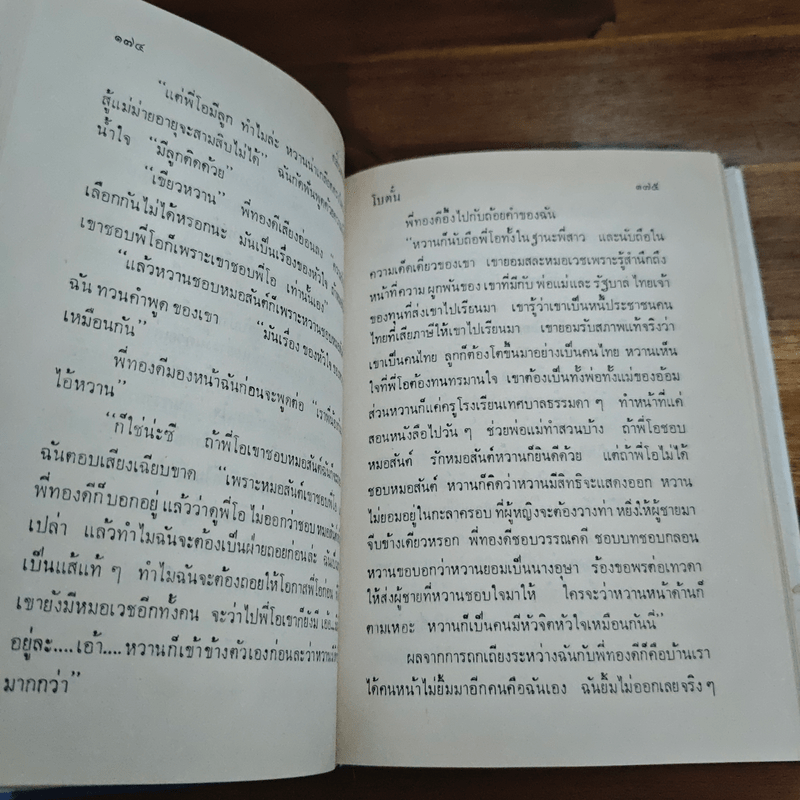 ๑๗๔
"แต่พี่โอมีลูก ทำไมล่ะ หวานน่า
สู้แม่ม่ายอายุจะสามสิบไม่ได้" ฉันกัดฟันพูด
น้ำใจ "มีลูกติดด้วย"
"เขียวหวาน" พี่ทองดีเสียงอ่อนลง
เลือกกันไม่ได้หรอกนะ มันเป็นเรื่องของหัวใจ
เขาชอบพี่โอก็เพราะเขาชอบพี่โอ เท่านั้นเอง"
"แล้วหวานชอบหมอสันต์ก็เพราะหวานชอบ
ฉัน ทวนคำพูด ของเขา "มันเรื่อง ของหัวใจ
เหมือนกัน"
พี่ทองดีมองหน้าฉันก่อนจะพูดต่อ
ไอ้หวาน"
"ก็ใช่น่ะซี ถ้าพี่โอเขาชอบหมอสันต์
ฉันตอบเสียงเฉียบขาด "เพราะหมอสันต์เขาชอบพี่โอ
พี่ทองดีก็บอกอยู่ แล้วว่าดูพี่โอ ไม่ออกว่าชอบหมอสันต์
เปล่า แล้วทำไมฉันจะต้องเป็นฝ่ายถอยก่อนล่ะ
เป็นแส้แท้ ๆ ทำไมฉันจะต้องถอยให้โอกาสพี่โอก่อน
เขายังมีหมอเวชอีกทั้งคน จะว่าไปพี่โอเขาก็ยังมี
อยู่ละ....เอ้า....หวานก็เข้าข้างตัวเองก่อนละว่าหวาน
มากกว่า"
โบตั๋น ๑๗๕
พี่ทองดีอึ้งไปกับถ้อยคำของฉัน
"หวานก็นับถือพี่โอทั้งใน ฐานะพี่สาว และนับถือใน
ความเด็ดเดี่ยวของเขา เขายอมสละหมอเวชเพราะรู้สำนึกถึง
หน้าที่ ความ ผูกพันของ เขาที่มีกับ พ่อแม่และ รัฐบาล ไทยเจ้า
ของทุนที่ส่งเขาไปเรียนมา เขารู้ว่าเขาเป็นหนี้ประชาชนคน
ไทยที่เสียภาษีให้เขาไปเรียนมา เขายอมรับสภาพแท้จริงว่า
เขาเป็นคนไทย ลูกก็ต้องโตขึ้นมาอย่างเป็นคนไทย หวานเห็น
ใจที่พี่โอต้องทนทรมานใจ เขาต้องเป็นทั้งพ่อทั้งแม่ของอ้อม
ส่วนหวานก็แค่ครูโรงเรียนเทศบาลธรรมดา ๆ ทำหน้าที่แค่
สอนหนังสือไปวัน ๆ ช่วยพ่อแม่ทำสวนบ้าง ถ้าพี่โอชอบ
หมอสันต์ รักหมอสันต์หวานก็ยินดีด้วย แต่ถ้าพี่โอไม่ได้
ชอบหมอสันต์ หวานก็คิดว่าหวานมีสิทธิจะแสดงออก หวาน
ไม่ยอมอยู่ในกะลาครอบ ที่ผู้หญิงจะต้องวางท่า หยิ่งให้ผู้ชายมา
จีบข้างเดียวหรอก พี่ทองดีชอบวรรณคดี ชอบบทชอบกลอน
หวานขอบอกว่าหวานยอมเป็นนางอุษา ร้องขอพรต่อเทวดา
ให้ส่งผู้ชายที่หวานชอบใจมาให้ ใครจะว่าหวานหน้าด้านก็
ตามเหอะ หวานก็เป็นคนมีหัวจิตหัวใจเหมือนกันนี่"
ผลจากการถกเถียงระหว่างฉันกับพี่ทองดีก็คือบ้านเรา
ได้คนหน้าไม่ยิ้มมาอีกคนคือฉันเอง ฉันยิ้มไม่ออกเลยจริง ๆ